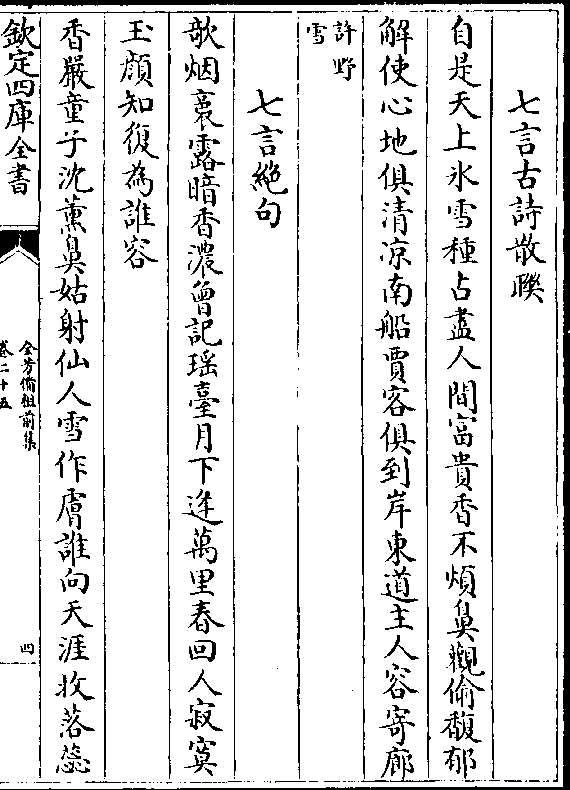 七言古詩散聮
自是天上氷雪種占盡人間富貴香不煩鼻觀偷馥郁
解使心地俱清凉南船賈客俱到岸東道主人容寄廊
許野
雪
七言絕句
欹烟裛露暗香濃曾記瑶臺月下逢萬里春回人寂寞
玉顔知復為誰容
香嚴童子沈薰鼻姑射仙人雪作膚誰向天涯收落蕊
欽定四庫全書
全芳備祖前集
卷二十五
四